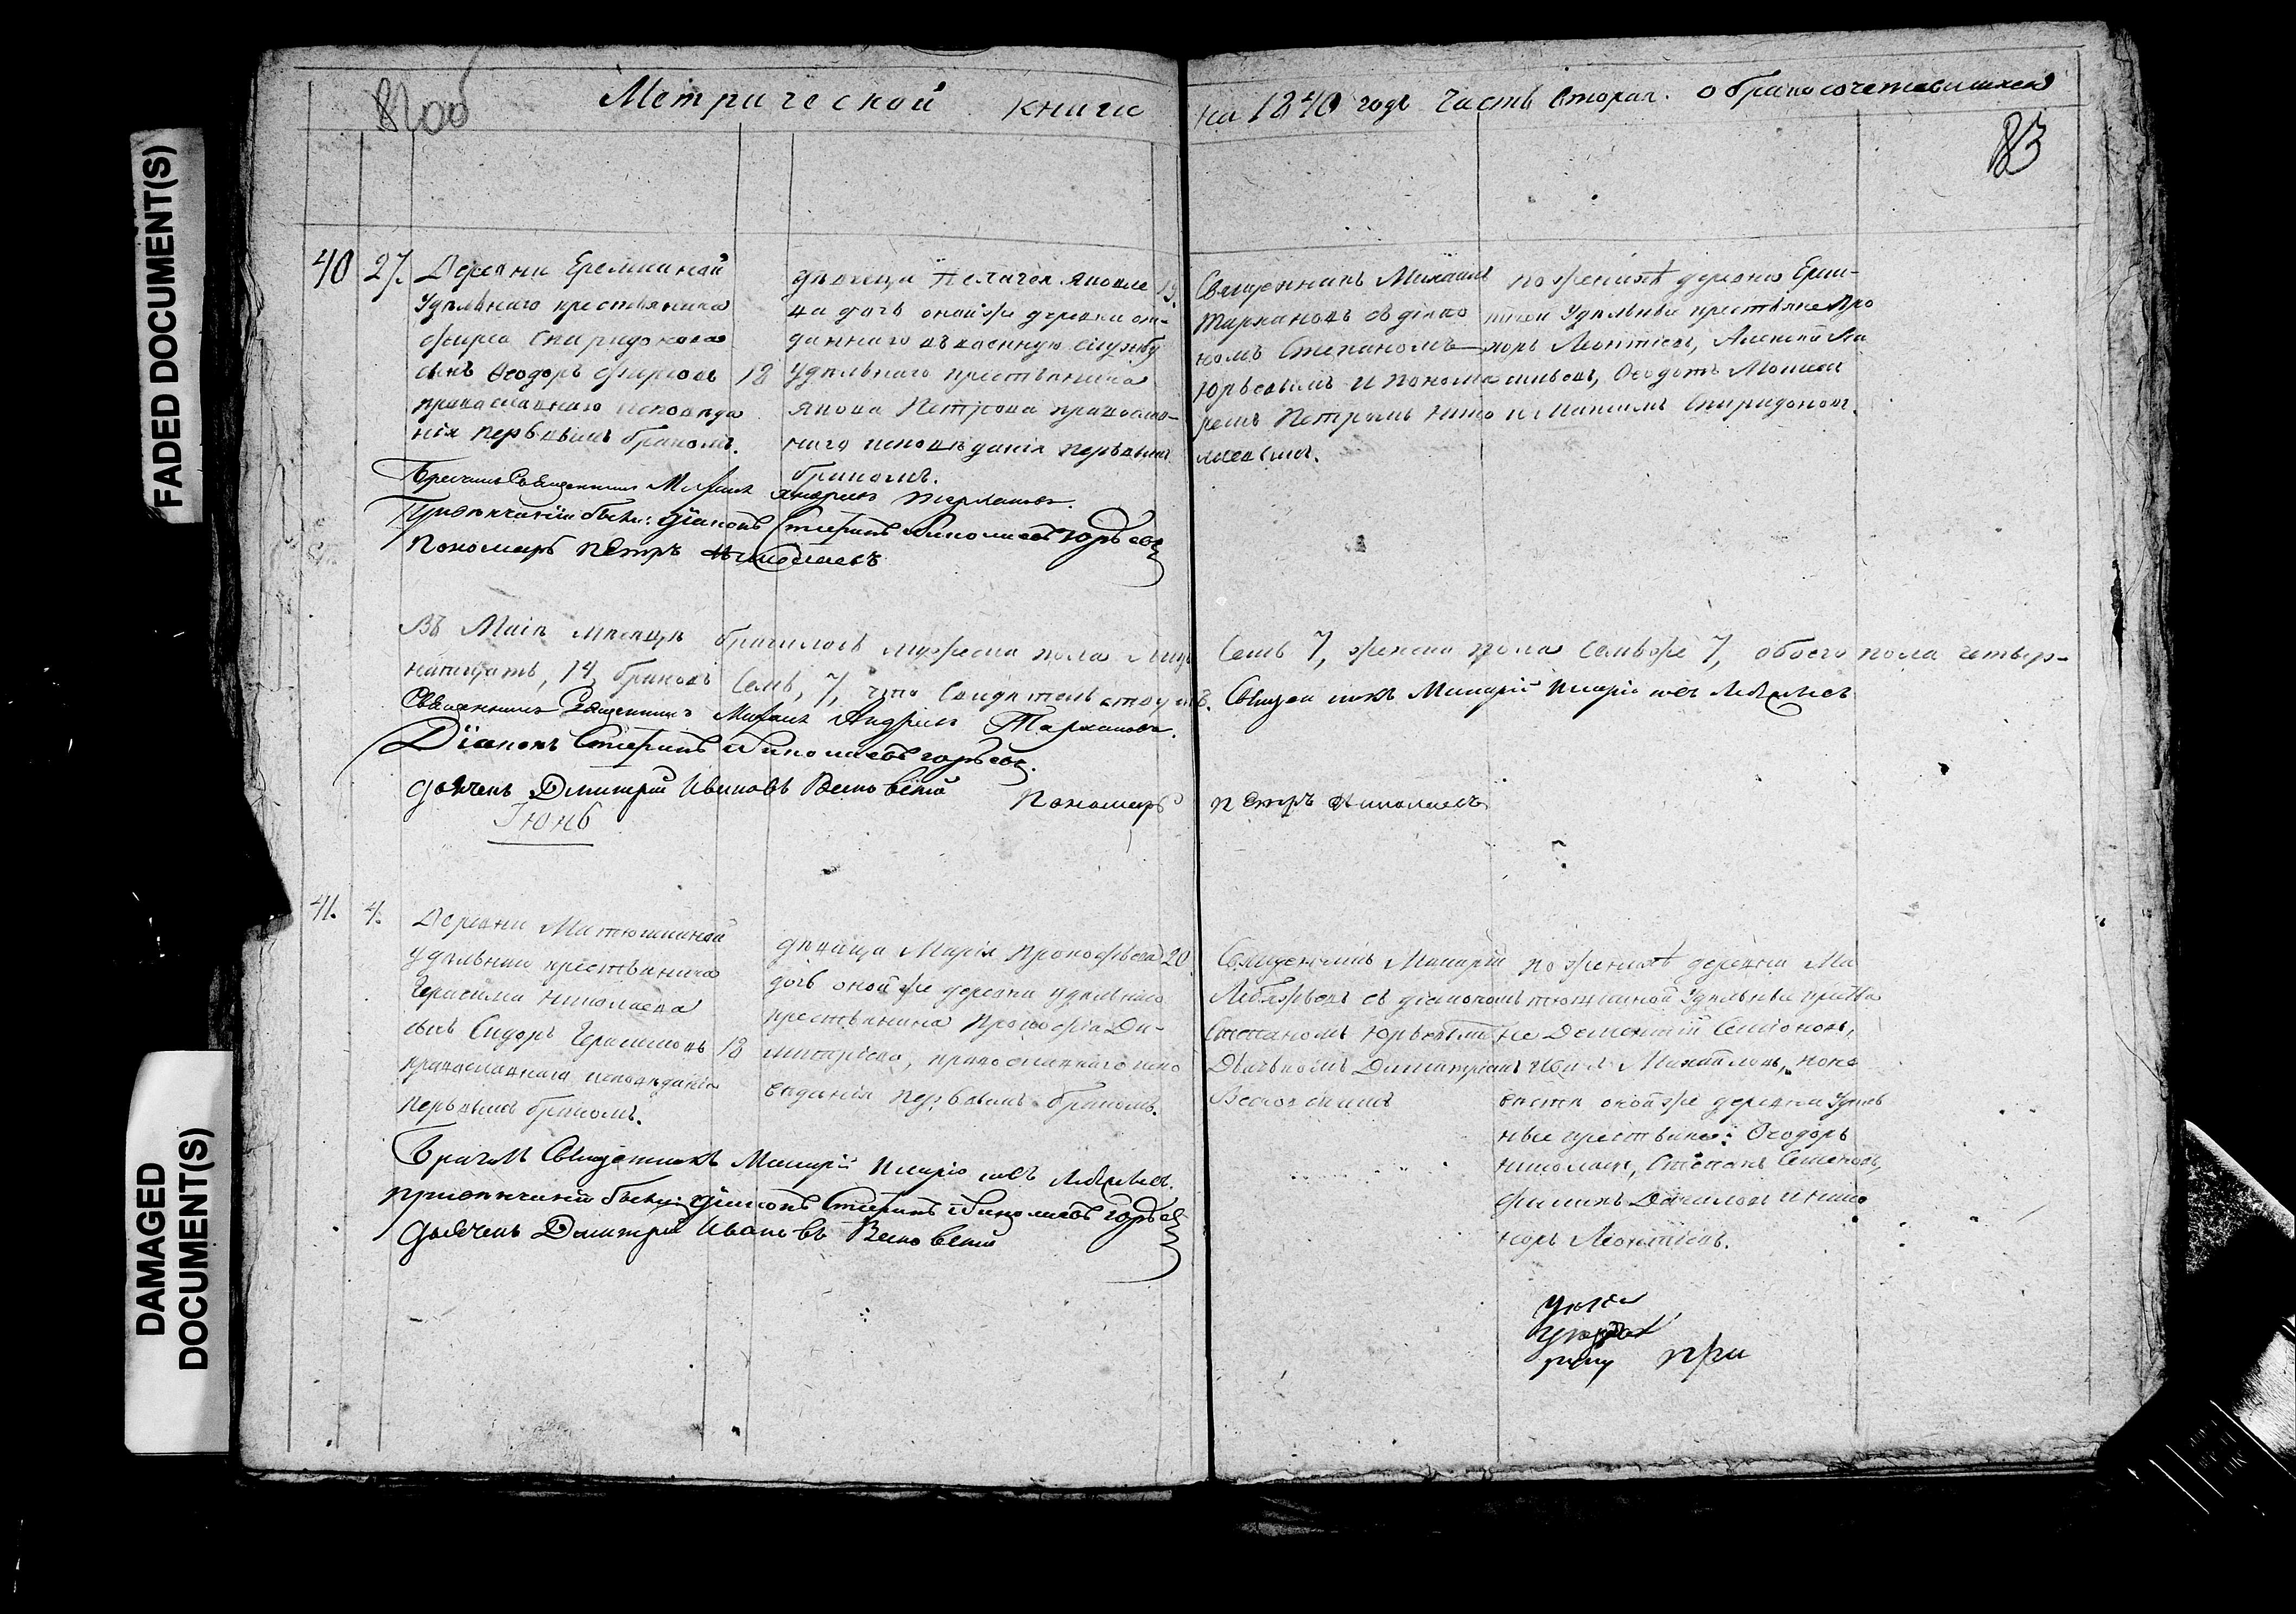 82 об
Метрической книги на 1840 годъ часть вторая. о бракосочетавшихся
83
40
27.
Деревни Ереминской
Удѣльнаго крестьянина
Фирса Спиридонова
сынъ Ѳеодоръ Фирсовъ
православнаго исповѣда
нія первымъ бракомъ.
18
дѣвица Пелагея Яковле
ва дочь оной же деревни от-
даннаго въ военную службу
удѣльнаго крестьянина
Якова Петрова православ-
наго исповѣданія первымъ
бракомъ.
19.
Священникъ Михаилъ
Тархановъ съ діако
номъ Стефаномъ
Юрьевымъ и понома
ремъ Петромъ Нико
лаевымъ.
по женихѣ деревни Ерем-
инской Удѣльные крестьяне Про
хоръ Леонтіевъ, Алексей
Ѳеодотъ
и Максимъ Спиридоновъ.
Бракъ Священникъ Михаилъ Андреевъ Тархановъ.
При вѣнчаніи были: Діаконъ Стефанъ Николаевъ Юрьевъ
Пономарь Петръ Николаевъ
Въ Маіѣ мѣсяцѣ бračилось мужеска пола лицъ семь 7, женска пола семь же 7, обоего пола четыр-
надцать, 14, браковъ семь, 7, что свидетельствуемъ. Священникъ Макарій
Священникъ Михаилъ Андреевъ Тархановъ.
Діаконъ Стефанъ Николаевъ Юрьевъ.
дьячекъ Дмитрій Ивановъ Пономарь Петръ Николаевъ
Іюнь
41.
4.
Деревни Матюшинской
удѣльнаго крестьянина
Герасима Николаева
сынъ Сидоръ Герасимовъ
православнаго исповѣданія
первымъ бракомъ.
18
дѣвица Марія Прокофьева
дочь оной же деревни удѣльнаго
крестьянина Прокофія Ди-
митріева, православнаго испо
вѣданія первымъ бракомъ.
20.
Священникъ Макарій
съ діакономъ
Стефаномъ Юрьевымъ
Дьячкомъ Димитріемъ
по женихѣ деревни Ма
тюшинской Удѣльные крестья
не Дементій Семіоновъ,
Михайловъ, по не
вѣстѣ оной же деревни Удѣль
ные крестьяне: Ѳеодоръ
Николаевъ, Степанъ Семеновъ,
Филипъ Даниловъ и Ника
норъ Леонтіевъ.
Священникъ Макарій
При вѣнчаніи были: Діаконъ Стефанъ Николаевъ Юрьевъ
Дьячекъ Дмитрій Ивановъ
при
FADED DOCUMENT(S)
DAMAGED DOCUMENT(S)